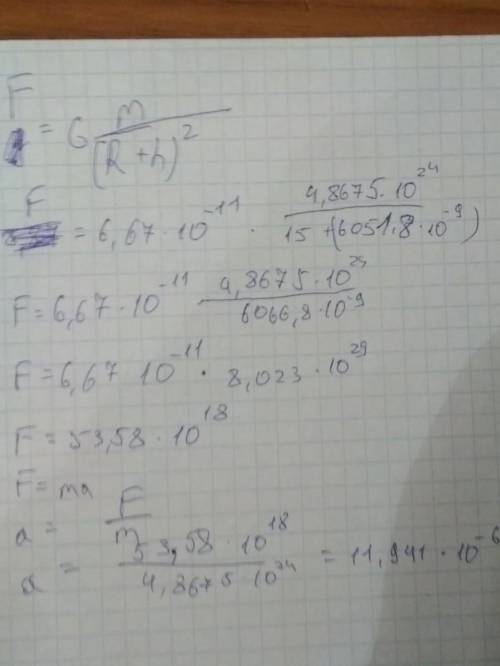 F = G m / (R + h)^2
F = 6,67 · 10^-11 · 4,8675 · 10^24 / 15 + (6051.8 · 10^-9)
F = 6,67 · 10^-11 4,8675 · 10^24 / 6066,8 · 10^-9
F = 6,67 10^-11 · 8,023 · 10^29
F = 53,58 · 10^18
F = ma
a = F / m
a = 53,58 · 10^18 / 4,8675 · 10^24 = 11,941 · 10^-6